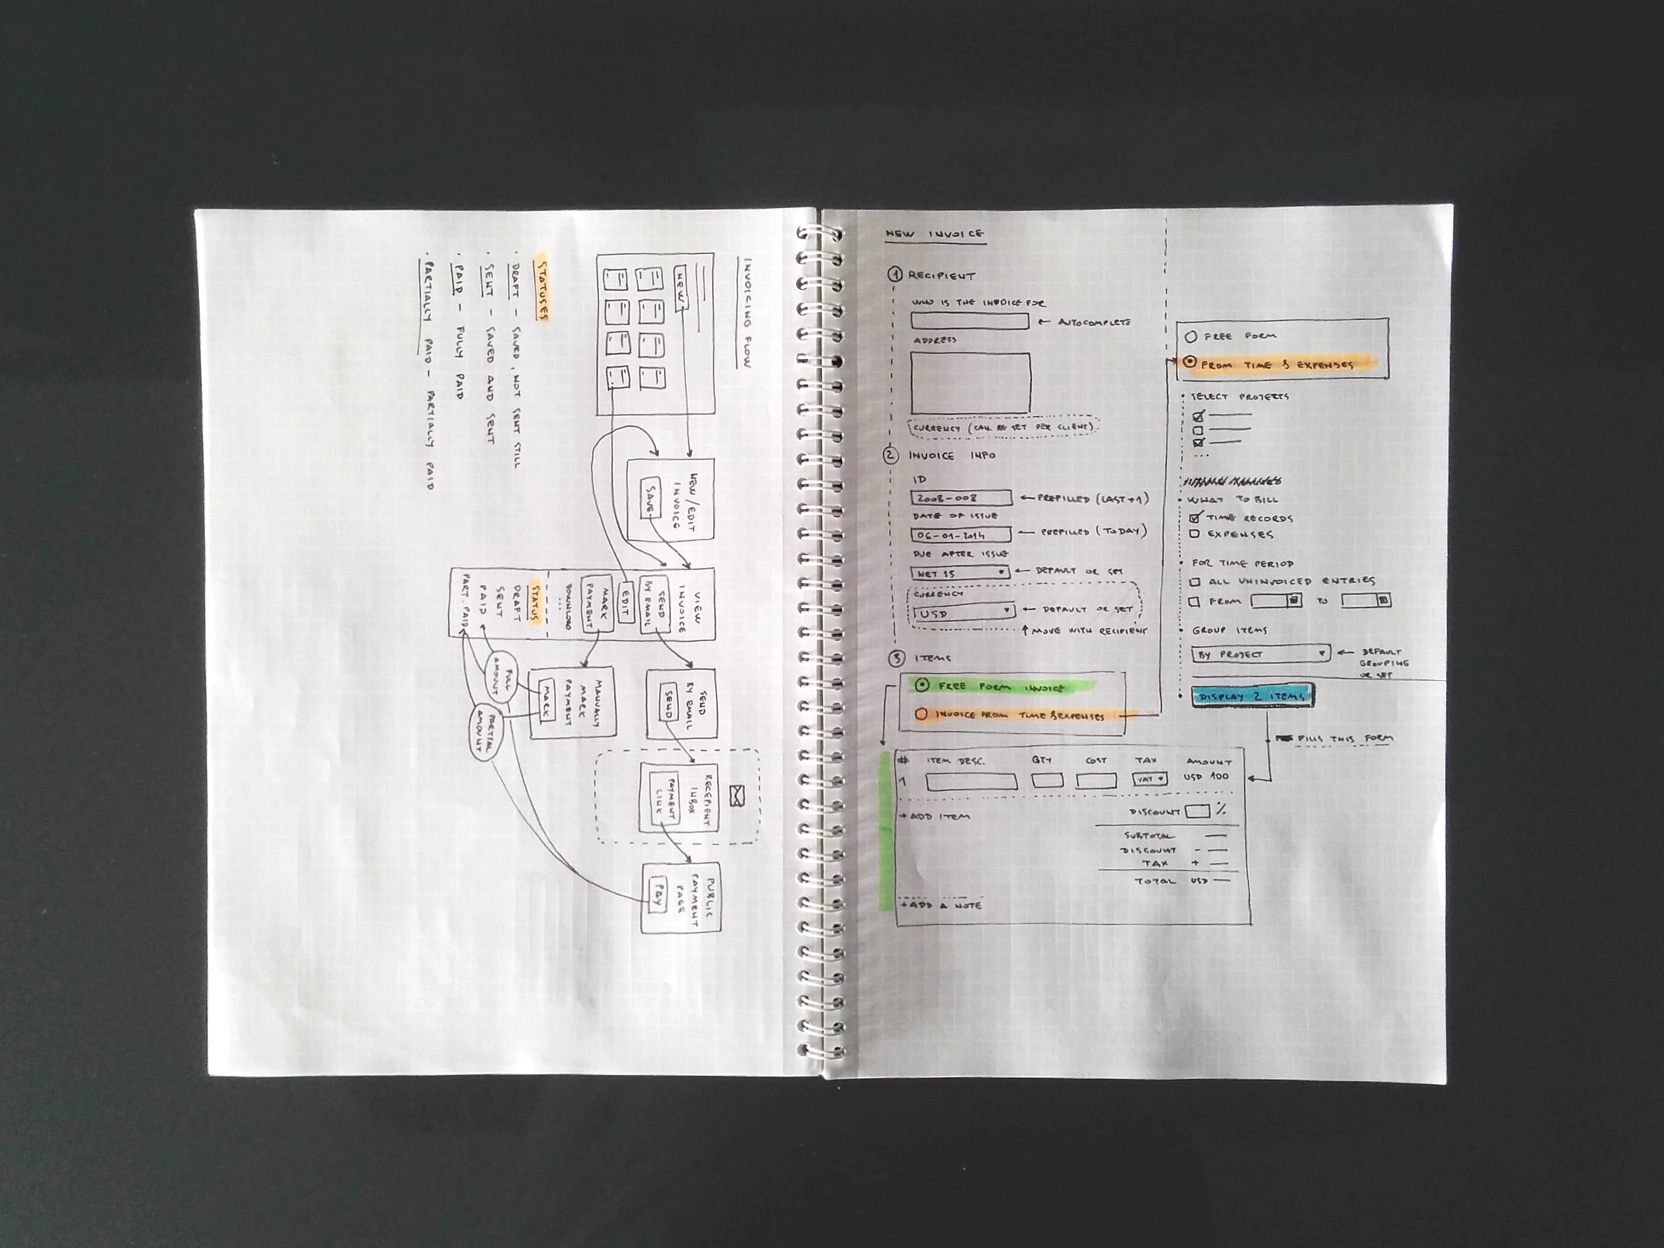 INVOICING FLOW
NEW
NEW/EDIT
INVOICE
SAVE
VIEW
INVOICE
SEND
BY EMAIL
EDIT
MARK
PAYMENT
DOWNLOAD
...
STATUS
DRAFT
SENT
PAID
PART. PAID
SEND
BY EMAIL
SEND
MANUALLY
MARK
PAYMENT
MARK
FULL
AMOUNT
PARTIAL
AMOUNT
RECEPIENT
INBOX
PAYMENT
LINK
PUBLIC
PAYMENT
PAGE
PAY
STATUSES
· DRAFT - SAVED, NOT SENT STILL
· SENT - SAVED AND SENT
· PAID - FULLY PAID
· PARTIALLY PAID - PARTIALLY PAID
NEW INVOICE
1 RECIPIENT
WHO IS THE INVOICE FOR
← AUTOCOMPLETE
ADDRESS
CURRENCY (CAN BE SET PER CLIENT)
2 INVOICE INFO
ID
2008-008 ← PREFILLED (LAST+1)
DATE OF ISSUE
06-01-2014 ← PREFILLED (TODAY)
DUE AFTER ISSUE
NET 15 ← DEFAULT OR SET
CURRENCY
USD ← DEFAULT OR SET
↑ MOVE WITH RECIPIENT
3 ITEMS
FREE FORM INVOICE
INVOICE FROM TIME & EXPENSES
# ITEM DESC. QTY COST TAX AMOUNT
1 VAT USD 100
+ ADD ITEM
DISCOUNT %
SUBTOTAL —
DISCOUNT - —
TAX + —
TOTAL USD —
+ ADD A NOTE
FREE FORM
FROM TIME & EXPENSES
· SELECT PROJECTS
...
· WHAT TO BILL
TIME RECORDS
EXPENSES
· FOR TIME PERIOD
ALL UNINVOICED ENTRIES
FROM TO
· GROUP ITEMS
BY PROJECT ← DEFAULT
GROUPING
OR SET
· DISPLAY 2 ITEMS
FILLS THIS FORM